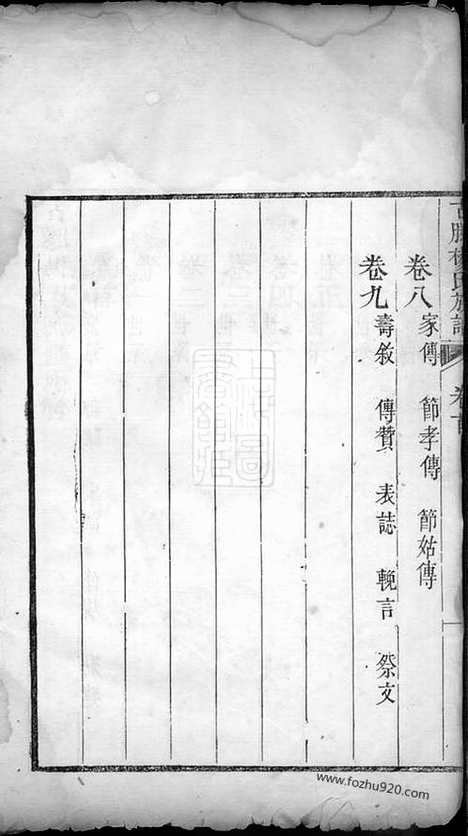 氏族譜
卷首
卷八 家傳 節孝傳 節姑傳
卷九 壽敘 傳贊 表誌 輓言 祭文
www.fozhu920.com